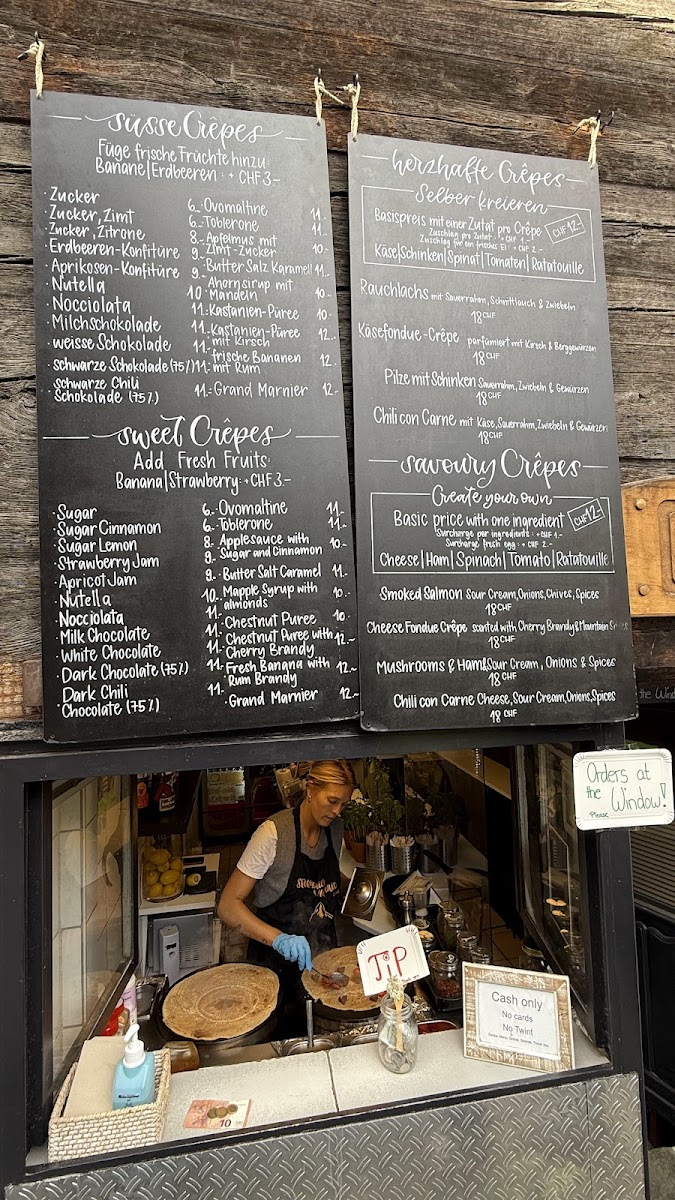 süsse Crêpes
Füge frische Früchte hinzu:
Banane|Erdbeeren : + CHF 3.-
· Zucker 6.-
· Zucker, Zimt 6.-
· Zucker, Zitrone 8.-
· Erdbeeren-Konfitüre 9.-
· Aprikosen-Konfitüre 9.-
· Nutella 10.-
· Nocciolata 11.-
· Milchschokolade 11.-
· weisse Schokolade 11.-
· schwarze Schokolade (75%) 11.-
· schwarze Chili
Schokolade (75%) 11.-
· Ovomaltine 11.-
· Toblerone 11.-
· Apfelmus mit
Zimt-Zucker 10.-
· Butter Salz Karamell 11.-
· Ahornsirup mit
Mandeln 10.-
· Kastanien-Püree 10.-
· Kastanien-Püree
mit Kirsch 12.-
· frische Bananen
mit Rum 12.-
· Grand Marnier 12.-
sweet Crêpes
Add Fresh Fruits:
Banana|Strawberry: + CHF 3.-
· Sugar 6.-
· Sugar Cinnamon 6.-
· Sugar Lemon 8.-
· Strawberry Jam 9.-
· Apricot Jam 9.-
· Nutella 10.-
· Nocciolata 11.-
· Milk Chocolate 11.-
· White Chocolate 11.-
· Dark Chocolate (75%) 11.-
· Dark Chili
Chocolate (75%) 11.-
· Ovomaltine 11.-
· Toblerone 11.-
· Applesauce with
Sugar and Cinnamon 10.-
· Butter Salt Caramel 11.-
· Mapple Syrup with
almonds 10.-
· Chestnut Puree 10.-
· Chestnut Puree with
Cherry Brandy 12.-
· Fresh Banana with
Rum Brandy 12.-
· Grand Marnier 12.-
herzhafte Crêpes
Selber kreieren
Basispreis mit einer Zutat pro Crêpe CHF 12.-
Zuschlag pro Zutat : + CHF 1.-
Zuschlag für ein frisches Ei : + CHF 2.-
Käse|Schinken|Spinat|Tomaten|Ratatouille
Rauchlachs mit Sauerrahm, Schnittlauch & Zwiebeln
18 CHF
Käsefondue-Crêpe parfümiert mit Kirsch & Berggewürzen
18 CHF
Pilze mit Schinken Sauerrahm, Zwiebeln & Gewürzen
18 CHF
Chili con Carne mit Käse, Sauerrahm, Zwiebeln & Gewürzen
18 CHF
savoury Crêpes
Create your own
Basic price with one ingredient CHF 12.-
Surcharge per ingredients : + CHF 1.-
Surcharge fresh egg : + CHF 2.-
Cheese|Ham|Spinach|Tomato|Ratatouille
Smoked Salmon Sour Cream, Onions, Chives, Spices
18 CHF
Cheese Fondue Crêpe scented with Cherry Brandy & Mountain Spices
18 CHF
Mushrooms & Ham & Sour Cream, Onions & Spices
18 CHF
Chili con Carne Cheese, Sour Cream, Onions, Spices
18 CHF
Orders at
the Window!
Please
TIP
Cash only
No cards
No Twint
10